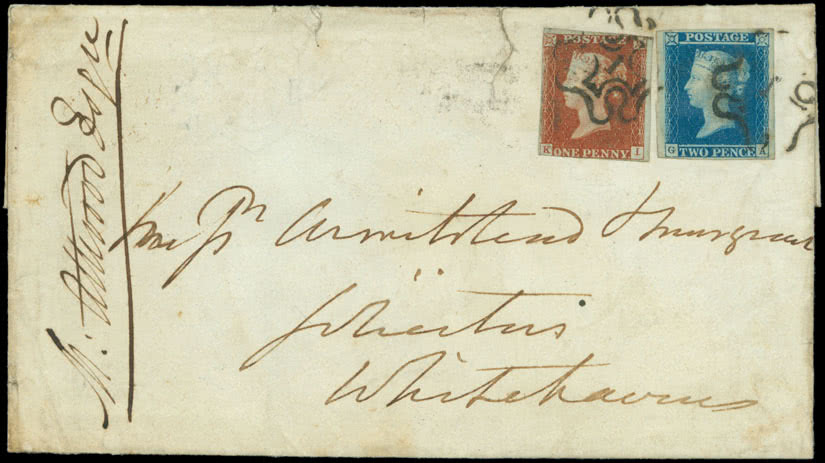 POSTAGE
ONE PENNY
K I
POSTAGE
TWO PENCE
G A
Attwood Esqre
Messrs Armitstead & Musgrave
Solicitors
Whitehaven